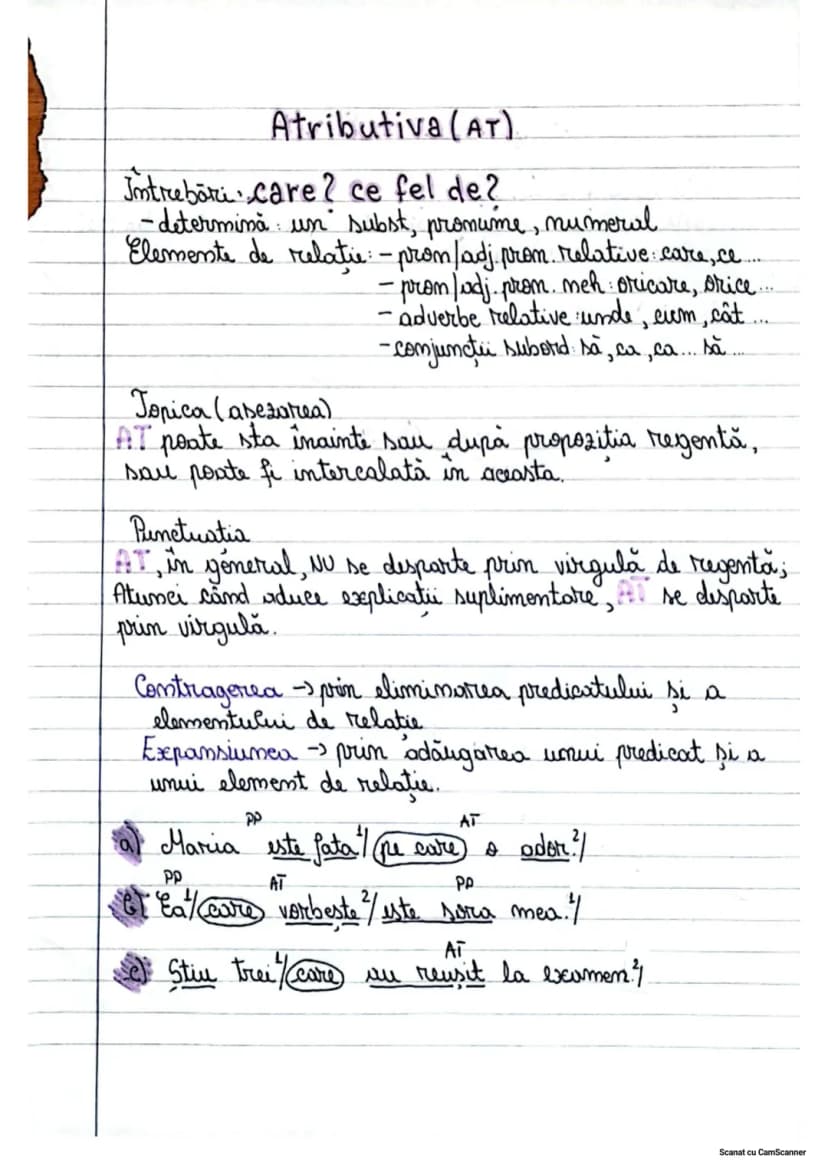 Atributiva (AT)
Întrebări: care? ce fel de?
- determină: un subst, pronume, numeral
Elemente de relație: - pron/adj. pron. relative: care, ce ...
- pron/adj. pron. neh: oricare, orice ...
- adverbe relative: unde, cum, cât ...
- conjuncții subord: să, ca, ca... să ...
Topica (asezarea)
AT poate sta înainte sau după propoziția regentă,
sau poate fi intercalată în aceasta.
Punctuatia
AT, în general, NU se desparte prin virgulă de regentă;
Atunci când aduce explicații suplimentare, AT se desparte
prin virgulă.
Contragerea -> prin eliminarea predicatului și a
elementului de relație
Expansiunea -> prin adăugarea unui predicat și a
unui element de relație.
PP AT
a) Maria este fata 1/ pe care o ador. 2/
PP AT PP
b) Ea 1/ care vorbește 2/ este sora mea. 1/
AT
c) Știu trei 1/ care au reușit la examen. 2/
Scanat cu CamScanner